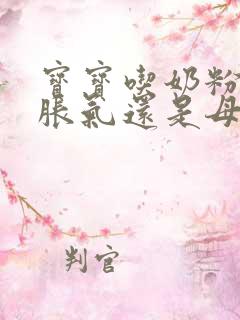 寶寶喫奶粉
脹氣還是母
判官